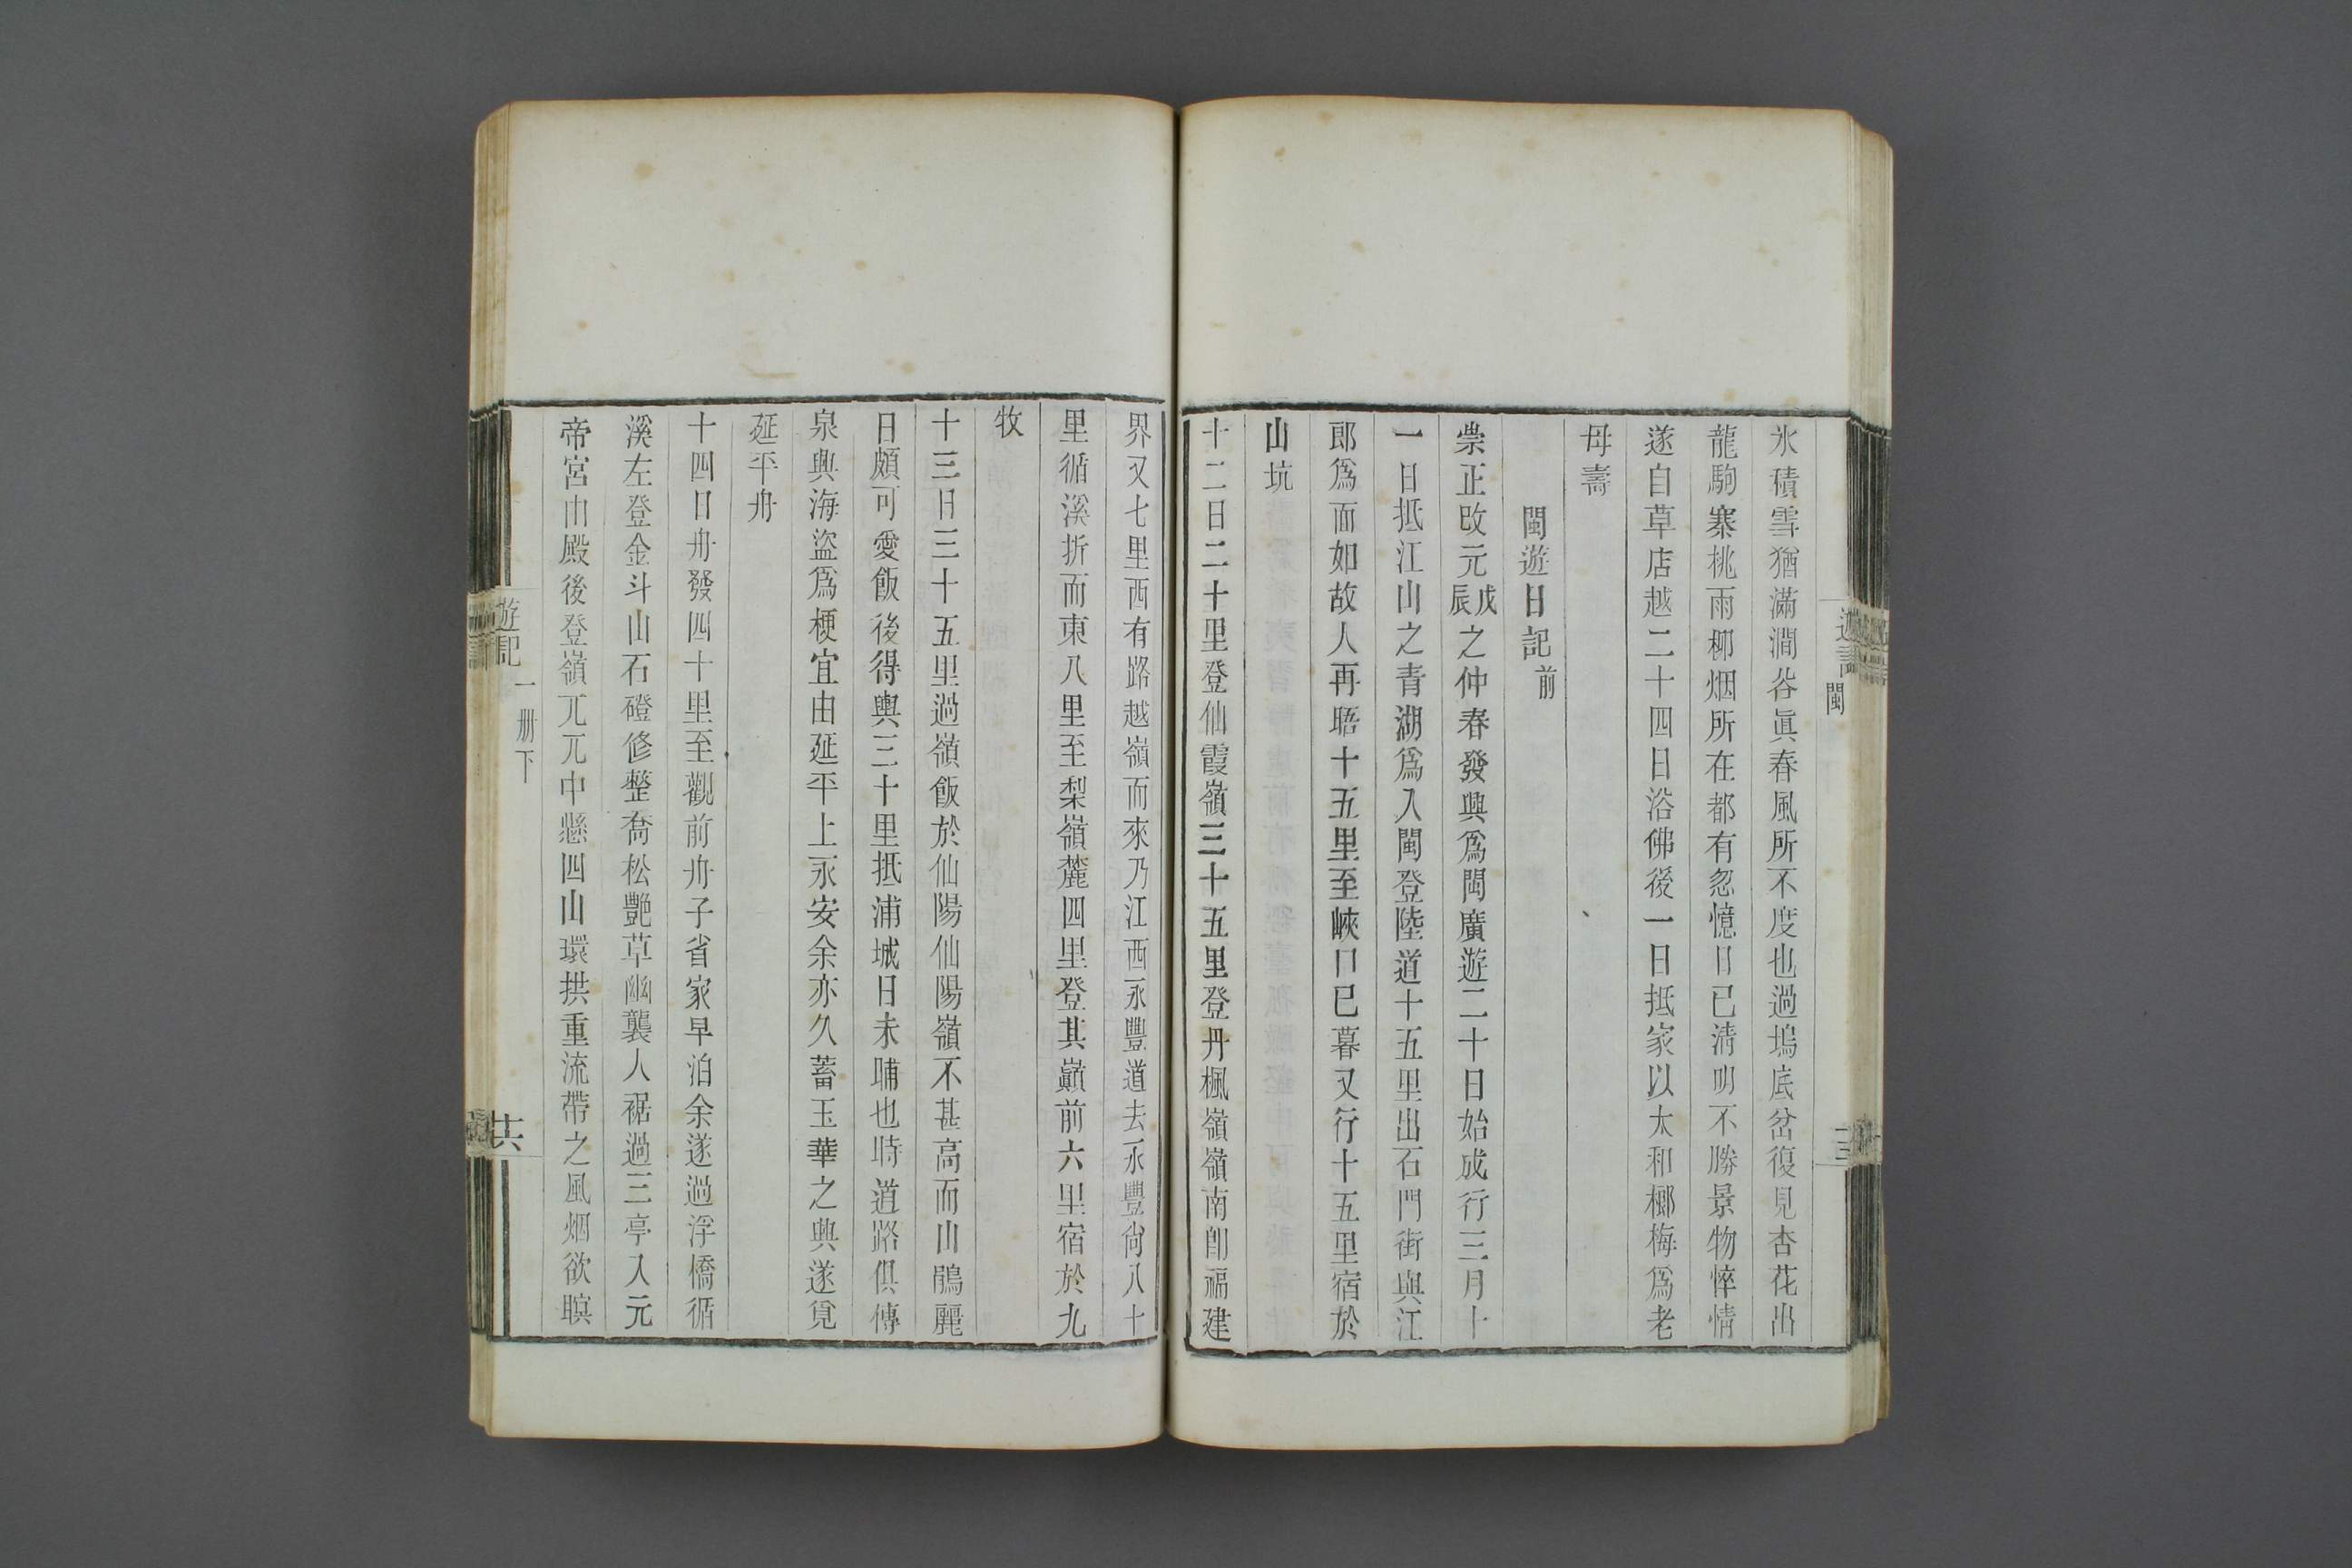 氷積雪猶滿澗谷眞春風所不度也過塢底岔復見杏花出
龍駒寨桃雨柳烟所在都有忽憶日已淸明不勝景物悴情
遂自草店越二十四日浴佛後一日抵家以太和榔梅爲老
母壽
閩遊日記前
崇正改元戊辰之仲春發興爲閩廣遊二十日始成行三月十
一日抵江山之青湖爲入閩登陸道十五里出石門街與江
郎爲面如故人再晤十五里至峽口已暮又行十五里宿於
山坑
十二日二十里登仙霞嶺三十五里登丹楓嶺嶺南卽福建
界又七里西有路越嶺而來乃江西永豐道去永豐尙八十
里循溪折而東八里至梨嶺麓四里登其巔前六里宿於九
牧
十三日三十五里過嶺飯於仙陽仙陽嶺不甚高而山鵑麗
日頗可愛飯後得輿三十里抵浦城日未晡也時道路俱傳
泉興海盜爲梗宜由延平上永安余亦久蓄玉華之興遂覓
延平舟
十四日舟發四十里至觀前舟子省家早泊余遂過浮橋循
溪左登金斗山石磴修整喬松艷草幽襲人裾過三亭入元
帝宮由殿後登嶺兀兀中懸四山環拱重流帶之風烟欲暝
遊記
一册下
十六
遊記
閩